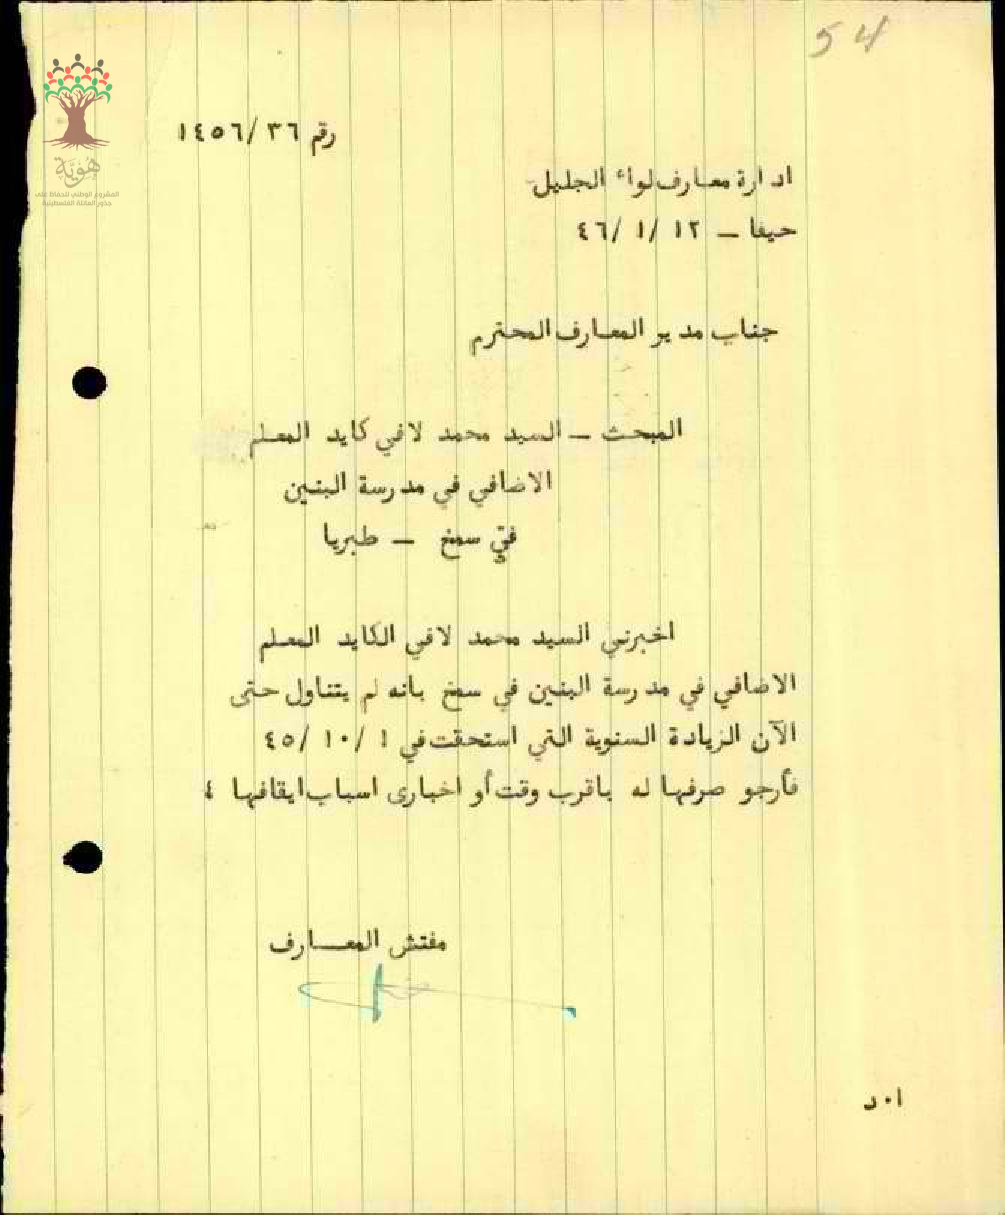 54
رقم ٣٦/ ١٤٥٦
ادارة معارف لواء الجليل
حيفا – ١٢ /١ /٤٦
جناب مدير المعارف المحترم
المبحث – السيد محمد لافي كايد المعلم
الاضافي في مدرسة البنين
في سمخ – طبريا
اخبرني السيد محمد لافي الكايد المعلم
الاضافي في مدرسة البنين في سمخ بانه لم يتناول حتى
الآن الزيادة السنوية التي استحقت في ١ /١٠ /٤٥
فأرجو صرفها له باقرب وقت أو اخبارى اسباب ايقافها ٤
مفتش المعــارف
ا٠د
هُوِيَّة
المشروع الوطني للحفاظ على
جذور العائلة الفلسطينية